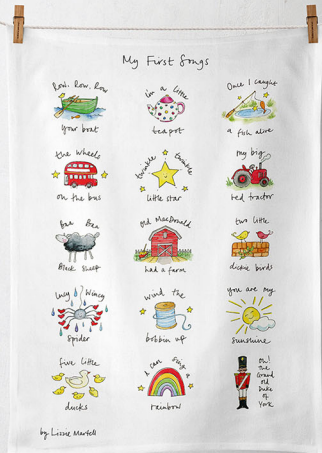 My First Songs
Row, Row, Row
your boat
in a little
teapot
Once I caught
a fish alive
the wheels
on the bus
twinkle twinkle
little star
my big
red tractor
Baa Baa
Black Sheep
Old MacDonald
had a farm
two little
dickie birds
Incy Wincy
spider
wind the
bobbin up
you are my
sunshine
five little
ducks
I can sing a
rainbow
oh!
the
Grand
old
Duke
of
York
by Lizzie Martell